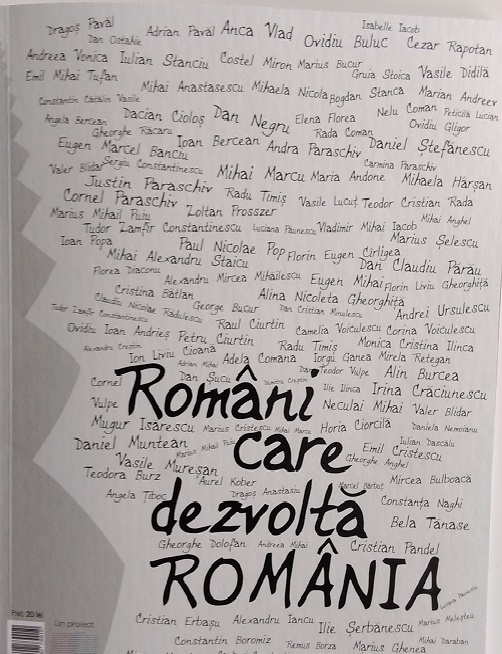 Isabelle Iacob
Dragoș Pavăl Adrian Pavăl Anca Vlad
Dan Ostahie Ovidiu Buluc Cezar Rapotan
Andreea Vonica Iulian Stanciu Costel Miron Marius Bucur
Emil Mihai Tufan Gruia Stoica Vasile Didilă
Mihai Anastasescu Mihaela Nicola Bogdan Stanca Marian Andreev
Constantin Cătălin Vasile Dacian Cioloș Dan Negru Elena Florea Nelu Coman Peticilă Lucian
Angela Bercean Gheorghe Răcaru Rada Coman Ovidiu Gligor
Eugen Marcel Banciu Ioan Bercean Andra Paraschiv Daniel Ștefănescu
Valer Blidar Sergiu Constantinescu Carmina Paraschiv
Mihai Marcu Maria Andone Mihaela Hârșan
Justin Paraschiv Radu Timiș Vasile Lucuț Teodor Cristian Rada
Cornel Paraschiv Zoltan Prosszer Mihai Anghel
Marius Mihail Puiu Luciana Păunescu Vladimir Mihai Iacob
Tudor Zamfir Constantinescu Marius Șelescu
Ioan Popa Paul Nicolae Pop Florin Eugen Cîrligea
Mihai Alexandru Staicu Dan Claudiu Părău
Florea Diaconu Alexandru Mircea Mihăilescu Eugen Mihai Florin Liviu Gheorghiță
Cristina Bâtlan Alina Nicoleta Gheorghiță
Claudiu Nicolae Rădulescu George Bucur Dan Cristian Minulescu Andrei Ursulescu
Tudor Zamfir Constantinescu Raul Ciurtin Camelia Voiculescu Corina Voiculescu
Ovidiu Ioan Andrieș Petru Ciurtin Radu Timiș Monica Cristina Ilinca
Alexandru Creștin Ion Liviu Cioană Adrian Mihai Adela Comana Iorgu Ganea Mirela Retegan
Dan Șucu Dumitru Creștin Dan Teodor Vulpe Alin Burcea
Cornel Ilie Ilinca Irina Crăciunescu
Români
Vulpe Neculai Mihai Valer Blidar
Mugur Isărescu Marius Cristescu Mihai Marcu Horia Ciorcilă Daniela Nemoianu
Daniel Muntean Marius Mihail Puiu Iulian Dascălu
care
Emil Cristescu
Vasile Mureșan Gheorghe Anghel
Teodora Burz Aurel Kober Marcel Bărbuț Mircea Bulboacă
Angela Țiboc Dragoș Anastasiu Constanța Naghi
dezvoltă
Bela Tanase
Gheorghe Dolofan Andreea Mihai Cristian Pandel
ROMÂNIA
Luciana Păunescu
Cristian Erbașu Alexandru Iancu Ilie Șerbănescu Marius Meleșteu
Constantin Boromiz Remus Borza Marius Ghenea Mihai Daraban
Preț: 20 lei
Un proiect